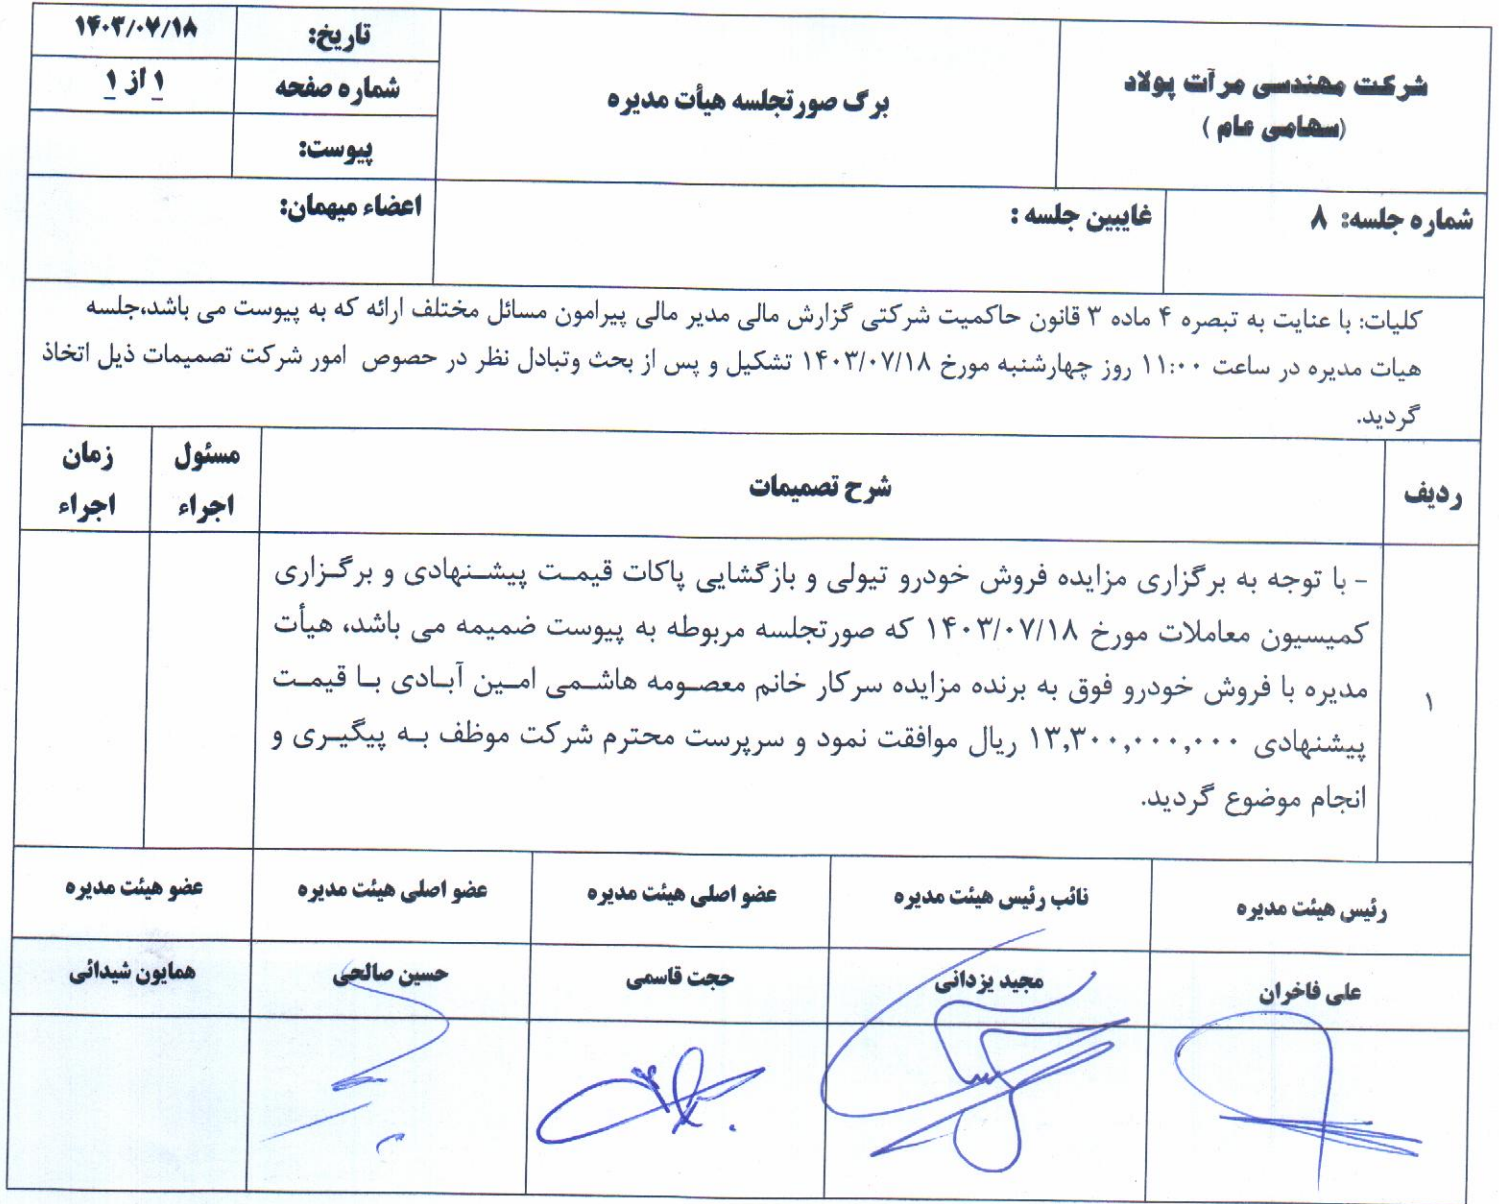 شرکت مهندسی مرآت پولاد
(سهامی عام )
برگ صورتجلسه هیأت مدیره
تاریخ:
۱۴۰۳/۰۷/۱۸
شماره صفحه
۱ از ۱
پیوست:
شماره جلسه: ۸
غایبین جلسه :
اعضاء میهمان:
کلیات: با عنایت به تبصره ۴ ماده ۳ قانون حاکمیت شرکتی گزارش مالی مدیر مالی پیرامون مسائل مختلف ارائه که به پیوست می باشد،جلسه
هیات مدیره در ساعت ۱۱:۰۰ روز چهارشنبه مورخ ۱۴۰۳/۰۷/۱۸ تشکیل و پس از بحث وتبادل نظر در حصوص امور شرکت تصمیمات ذیل اتخاذ
گردید.
ردیف
شرح تصمیمات
مسئول
اجراء
زمان
اجراء
۱
- با توجه به برگزاری مزایده فروش خودرو تیولی و بازگشایی پاکات قیمت پیشنهادی و برگزاری
کمیسیون معاملات مورخ ۱۴۰۳/۰۷/۱۸ که صورتجلسه مربوطه به پیوست ضمیمه می باشد، هیأت
مدیره با فروش خودرو فوق به برنده مزایده سرکار خانم معصومه هاشمی امین آبادی با قیمت
پیشنهادی ۱۳,۳۰۰,۰۰۰,۰۰۰ ریال موافقت نمود و سرپرست محترم شرکت موظف به پیگیری و
انجام موضوع گردید.
رئیس هیئت مدیره
نائب رئیس هیئت مدیره
عضو اصلی هیئت مدیره
عضو اصلی هیئت مدیره
عضو هیئت مدیره
علی فاخران
مجید یزدانی
حجت قاسمی
حسین صالحی
همایون شیدائی